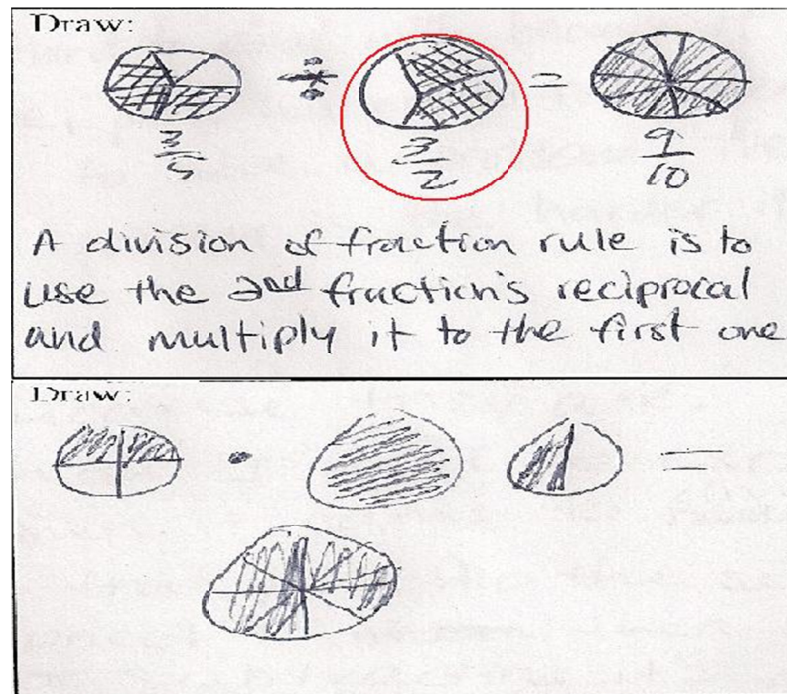 Draw:
÷ =
3/5 3/2 9/10
A division of fraction rule is to
use the 2nd fraction's reciprocal
and multiply it to the first one
Draw:
· =